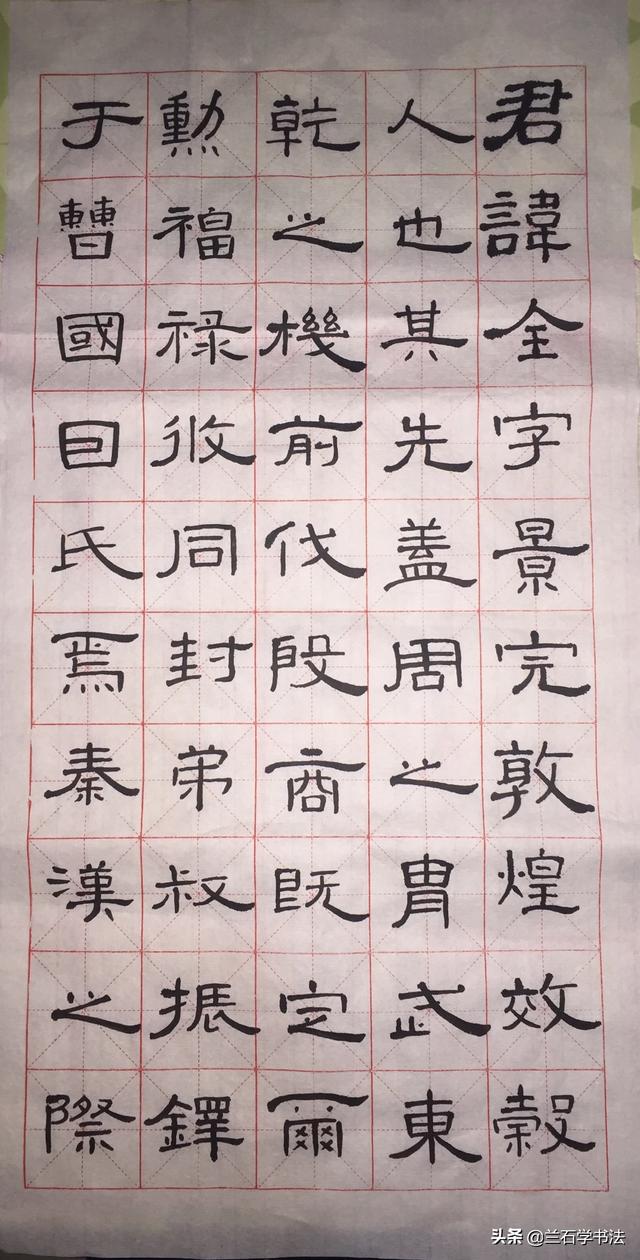 君諱全字景完敦煌效穀
人也其先蓋周之胄武東
乾之機前伐殷商既定爾
勲福祿攸同封弟叔振鐸
于曹國因氏焉秦漢之際
头条 @兰石学书法